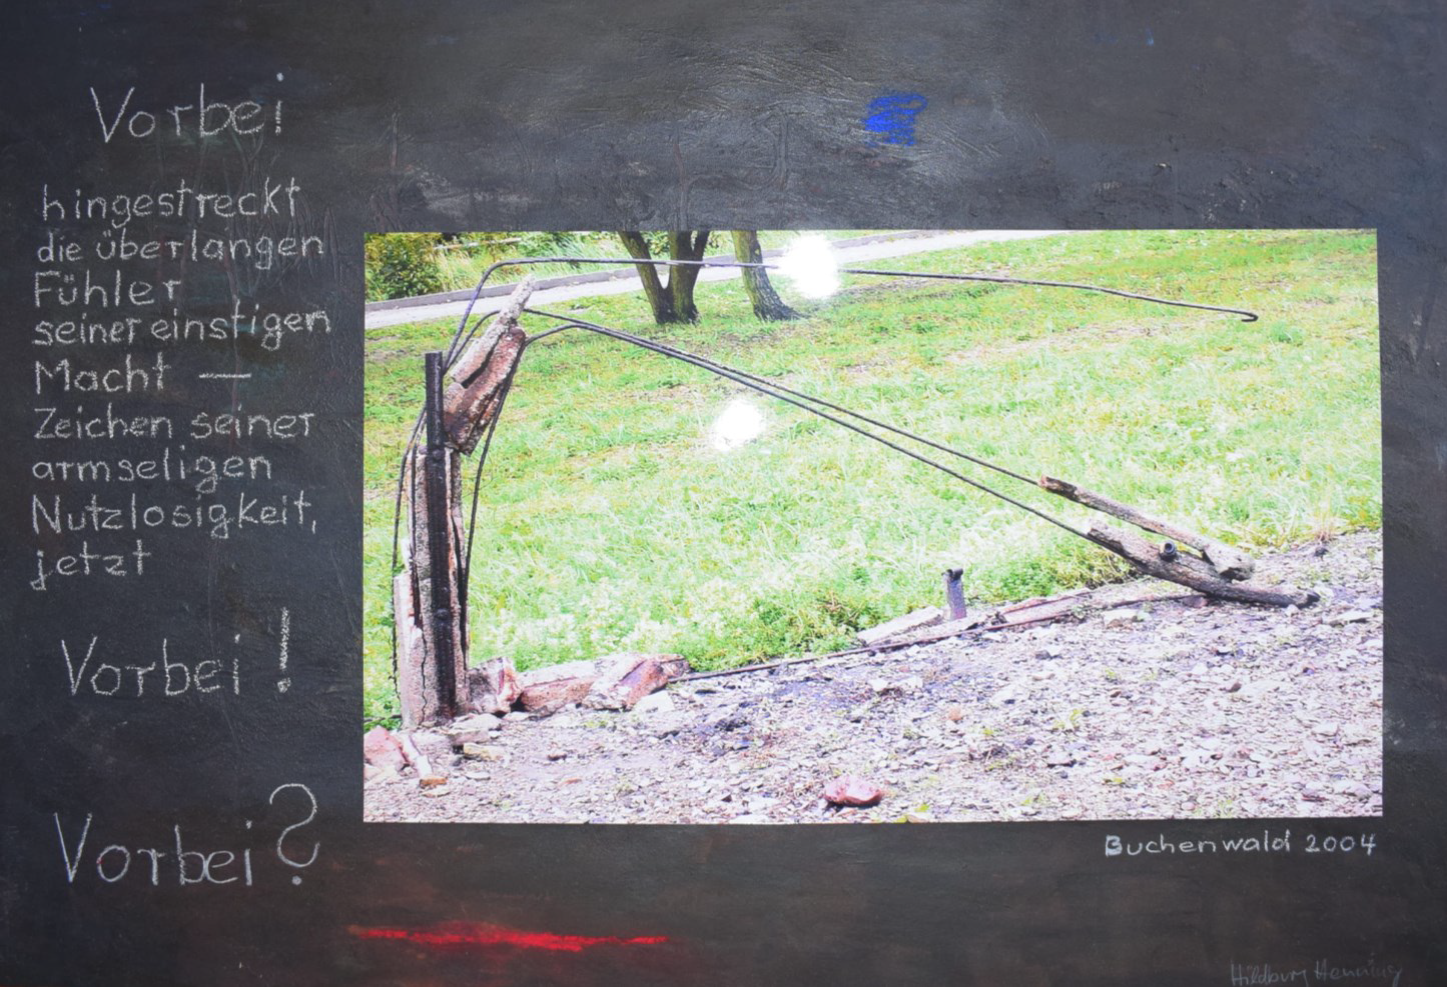 Vorbei
hingestreckt
die überlangen
Fühler
seiner einstigen
Macht —
Zeichen seiner
armseligen
Nutzlosigkeit,
jetzt
Vorbei!
Vorbei?
Buchenwald 2004
Hildburg Henning